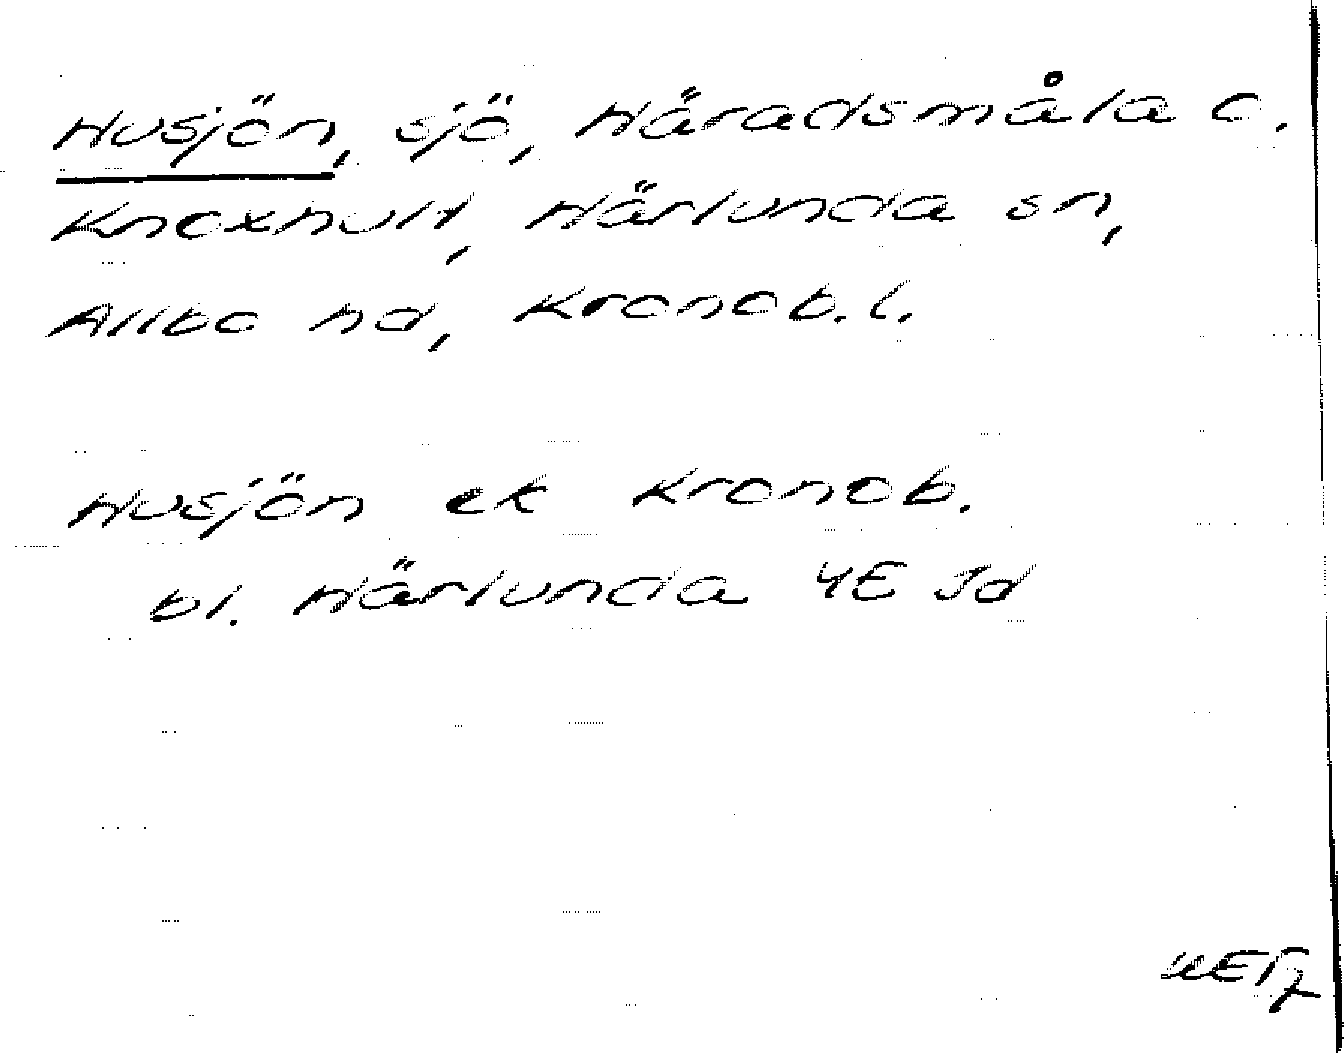 Husjön, sjö, Häradsmåla o.
Knoxhult, Härlunda sn,
Allbo hd, Kronob. l.
Husjön ek Kronob.
bl. Härlunda 4E Jd